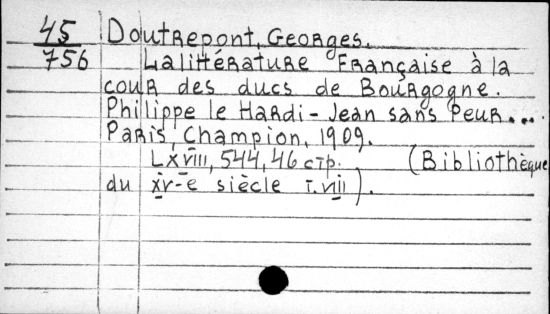 45 Doutrepont, Georges.
756 La littérature Française à la
cour des ducs de Bourgogne.
Philippe le Hardi - Jean sans Peur...
Paris, Champion, 1909.
LXVIII, 544, 46 стр. (Bibliothèque
du XV-e siècle T.VIII).